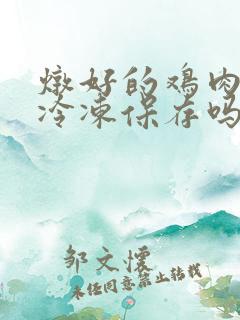 燉好的鸡肉
冷凍保存吗
邹文懷
未经同意禁止转载